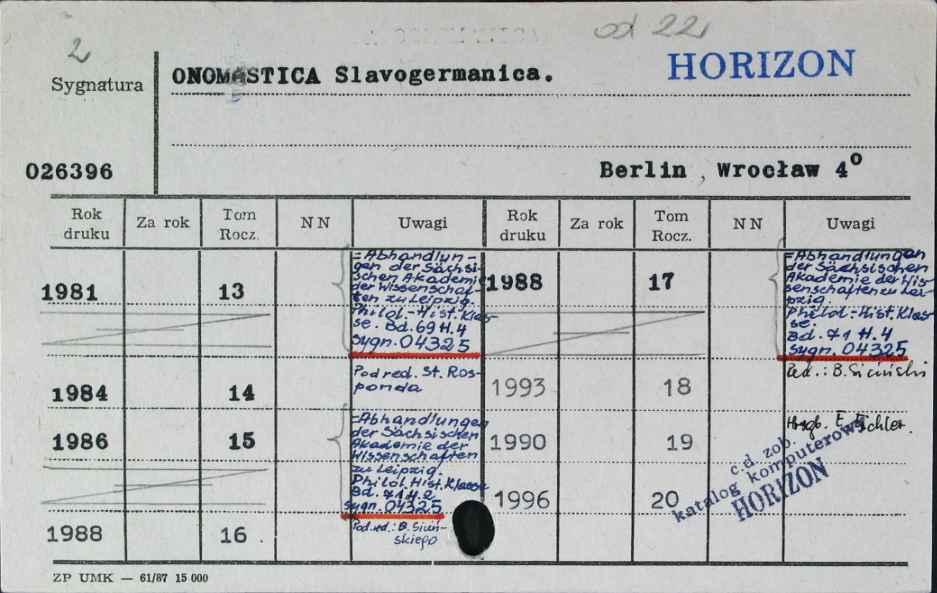 2
od 22
Sygnatura
ONOMASTICA Slavogermanica.
HORIZON
026396
Berlin, Wrocław 4°
Rok druku
Za rok
Tom Rocz.
NN
Uwagi
Rok druku
Za rok
Tom Rocz.
NN
Uwagi
1981
13
=Abhandlun-
gen der Sächsi-
schen Akademie
der Wissenschaf-
ten zu Leipzig.
Philol.-Hist. Klas-
se. Bd. 69 H. 4
Sygn. 04325
1984
14
Pod red. St. Ros-
ponda
1986
15
=Abhandlungen
der Sächsischen
Akademie der
Wissenschaften
zu Leipzig.
Philol. Hist. Klasse
Bd. 71 H. 2.
Sygn. 04325
1988
16
Pod. red.: B. Siciń-
skiego
1988
17
=Abhandlungen
der Sächsischen
Akademie der Wis-
senschaften zu Lei-
pzig.
Philol.-Hist. Klas-
se.
Bd. 71 H. 4
Sygn. 04325
1993
18
Red.: B. Siciński
1990
19
Hrsgb. E. Eichler.
1996
20
c.d zob.
katalog komputerowy
HORIZON
ZP UMK — 61/87 15 000